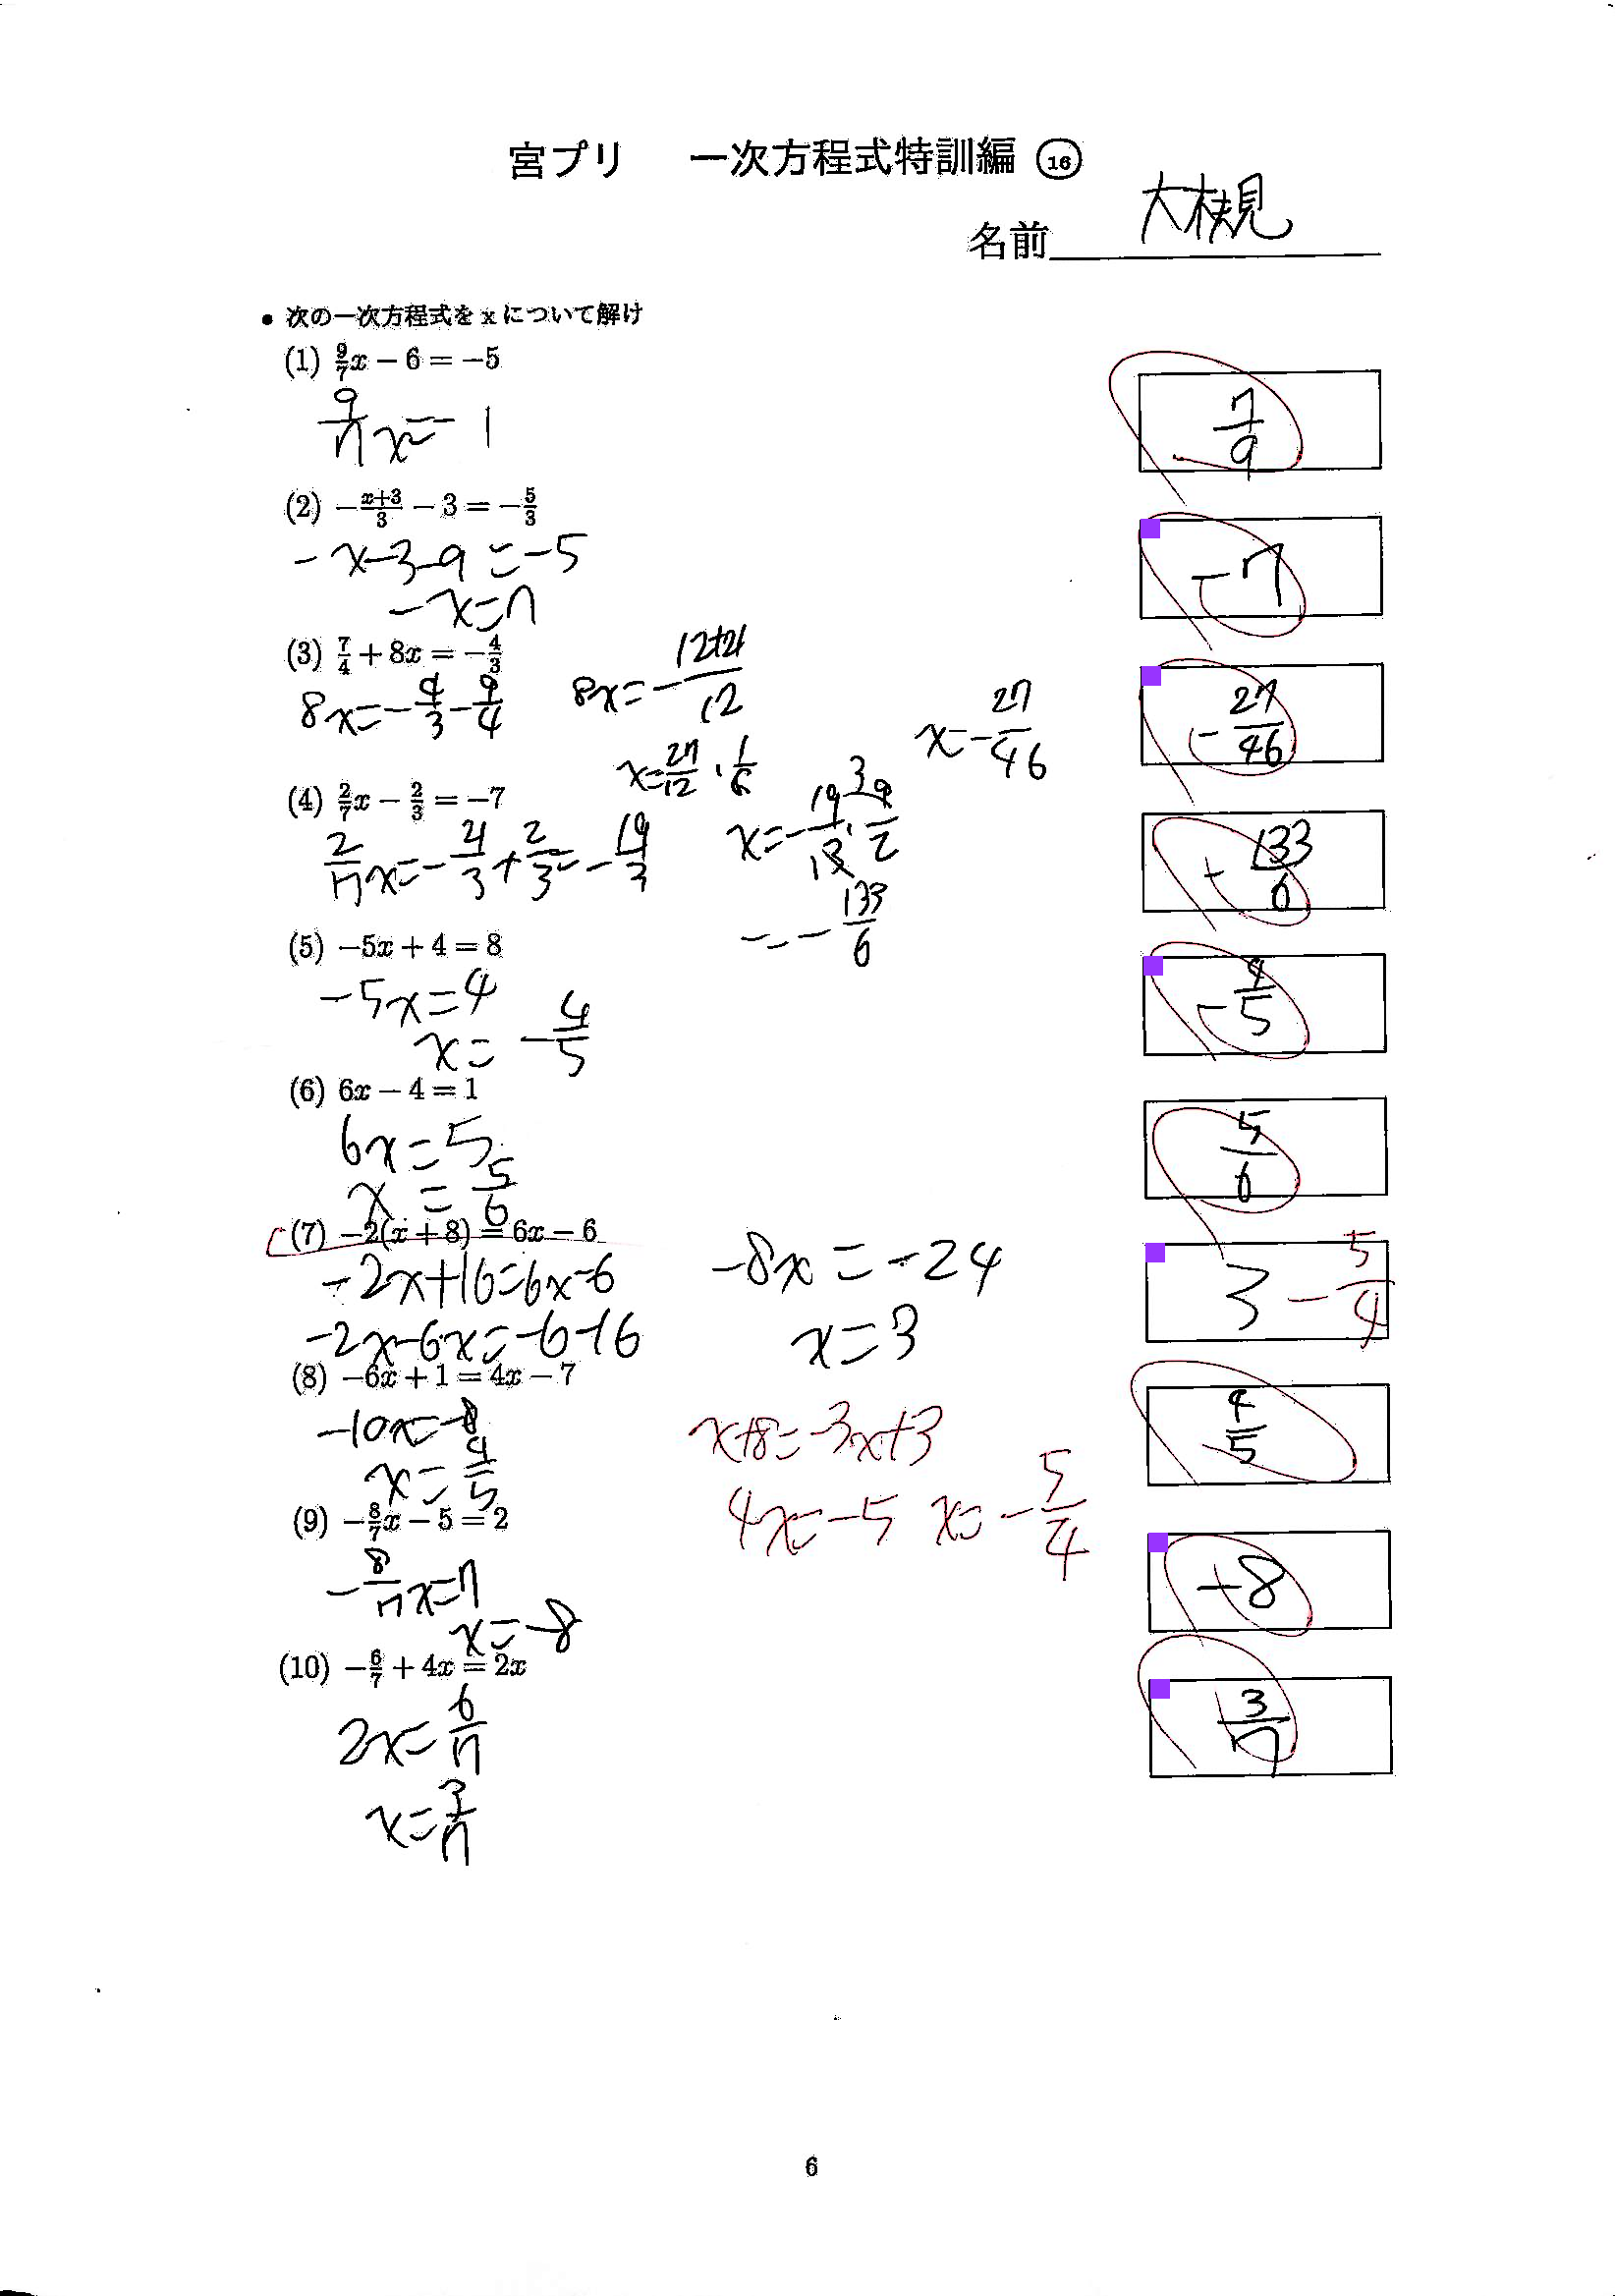 宮プリ 一次方程式特訓編 ⑯
名前 大槻見
• 次の一次方程式を x について解け
(1) 9/7 x − 6 = −5
9/7 x = 1
7/9
(2) −(x+3)/3 − 3 = −5/3
−x−3−9 = −5
−x = 7
−7
(3) 7/4 + 8x = −4/3
8x = −4/3 − 9/4
8x = −(12+21)/12
x = 27/12 · 1/6
x − 27/46
−27/46
(4) 2/7 x − 2/3 = −7
2/7 x = −21/3 + 2/3 = −19/3
= −133/6
133/6
(5) −5x + 4 = 8
−5x = 4
x = −4/5
−4/5
(6) 6x − 4 = 1
6x = 5
x = 5/6
5/6
(7) −2(x + 8) = 6x − 6
−2x+16=6x−6
−2x−6x=−6−16
−8x = −24
x = 3
3 −5/4
x+8=−3x+3
4x=−5 x=−5/4
(8) −6x + 1 = 4x − 7
−10x=−8
x = 4/5
4/5
(9) −8/7 x − 5 = 2
−8/7 x=7
x=−8
−8
(10) −6/7 + 4x = 2x
2x = 6/7
x = 3/7
3/7
6